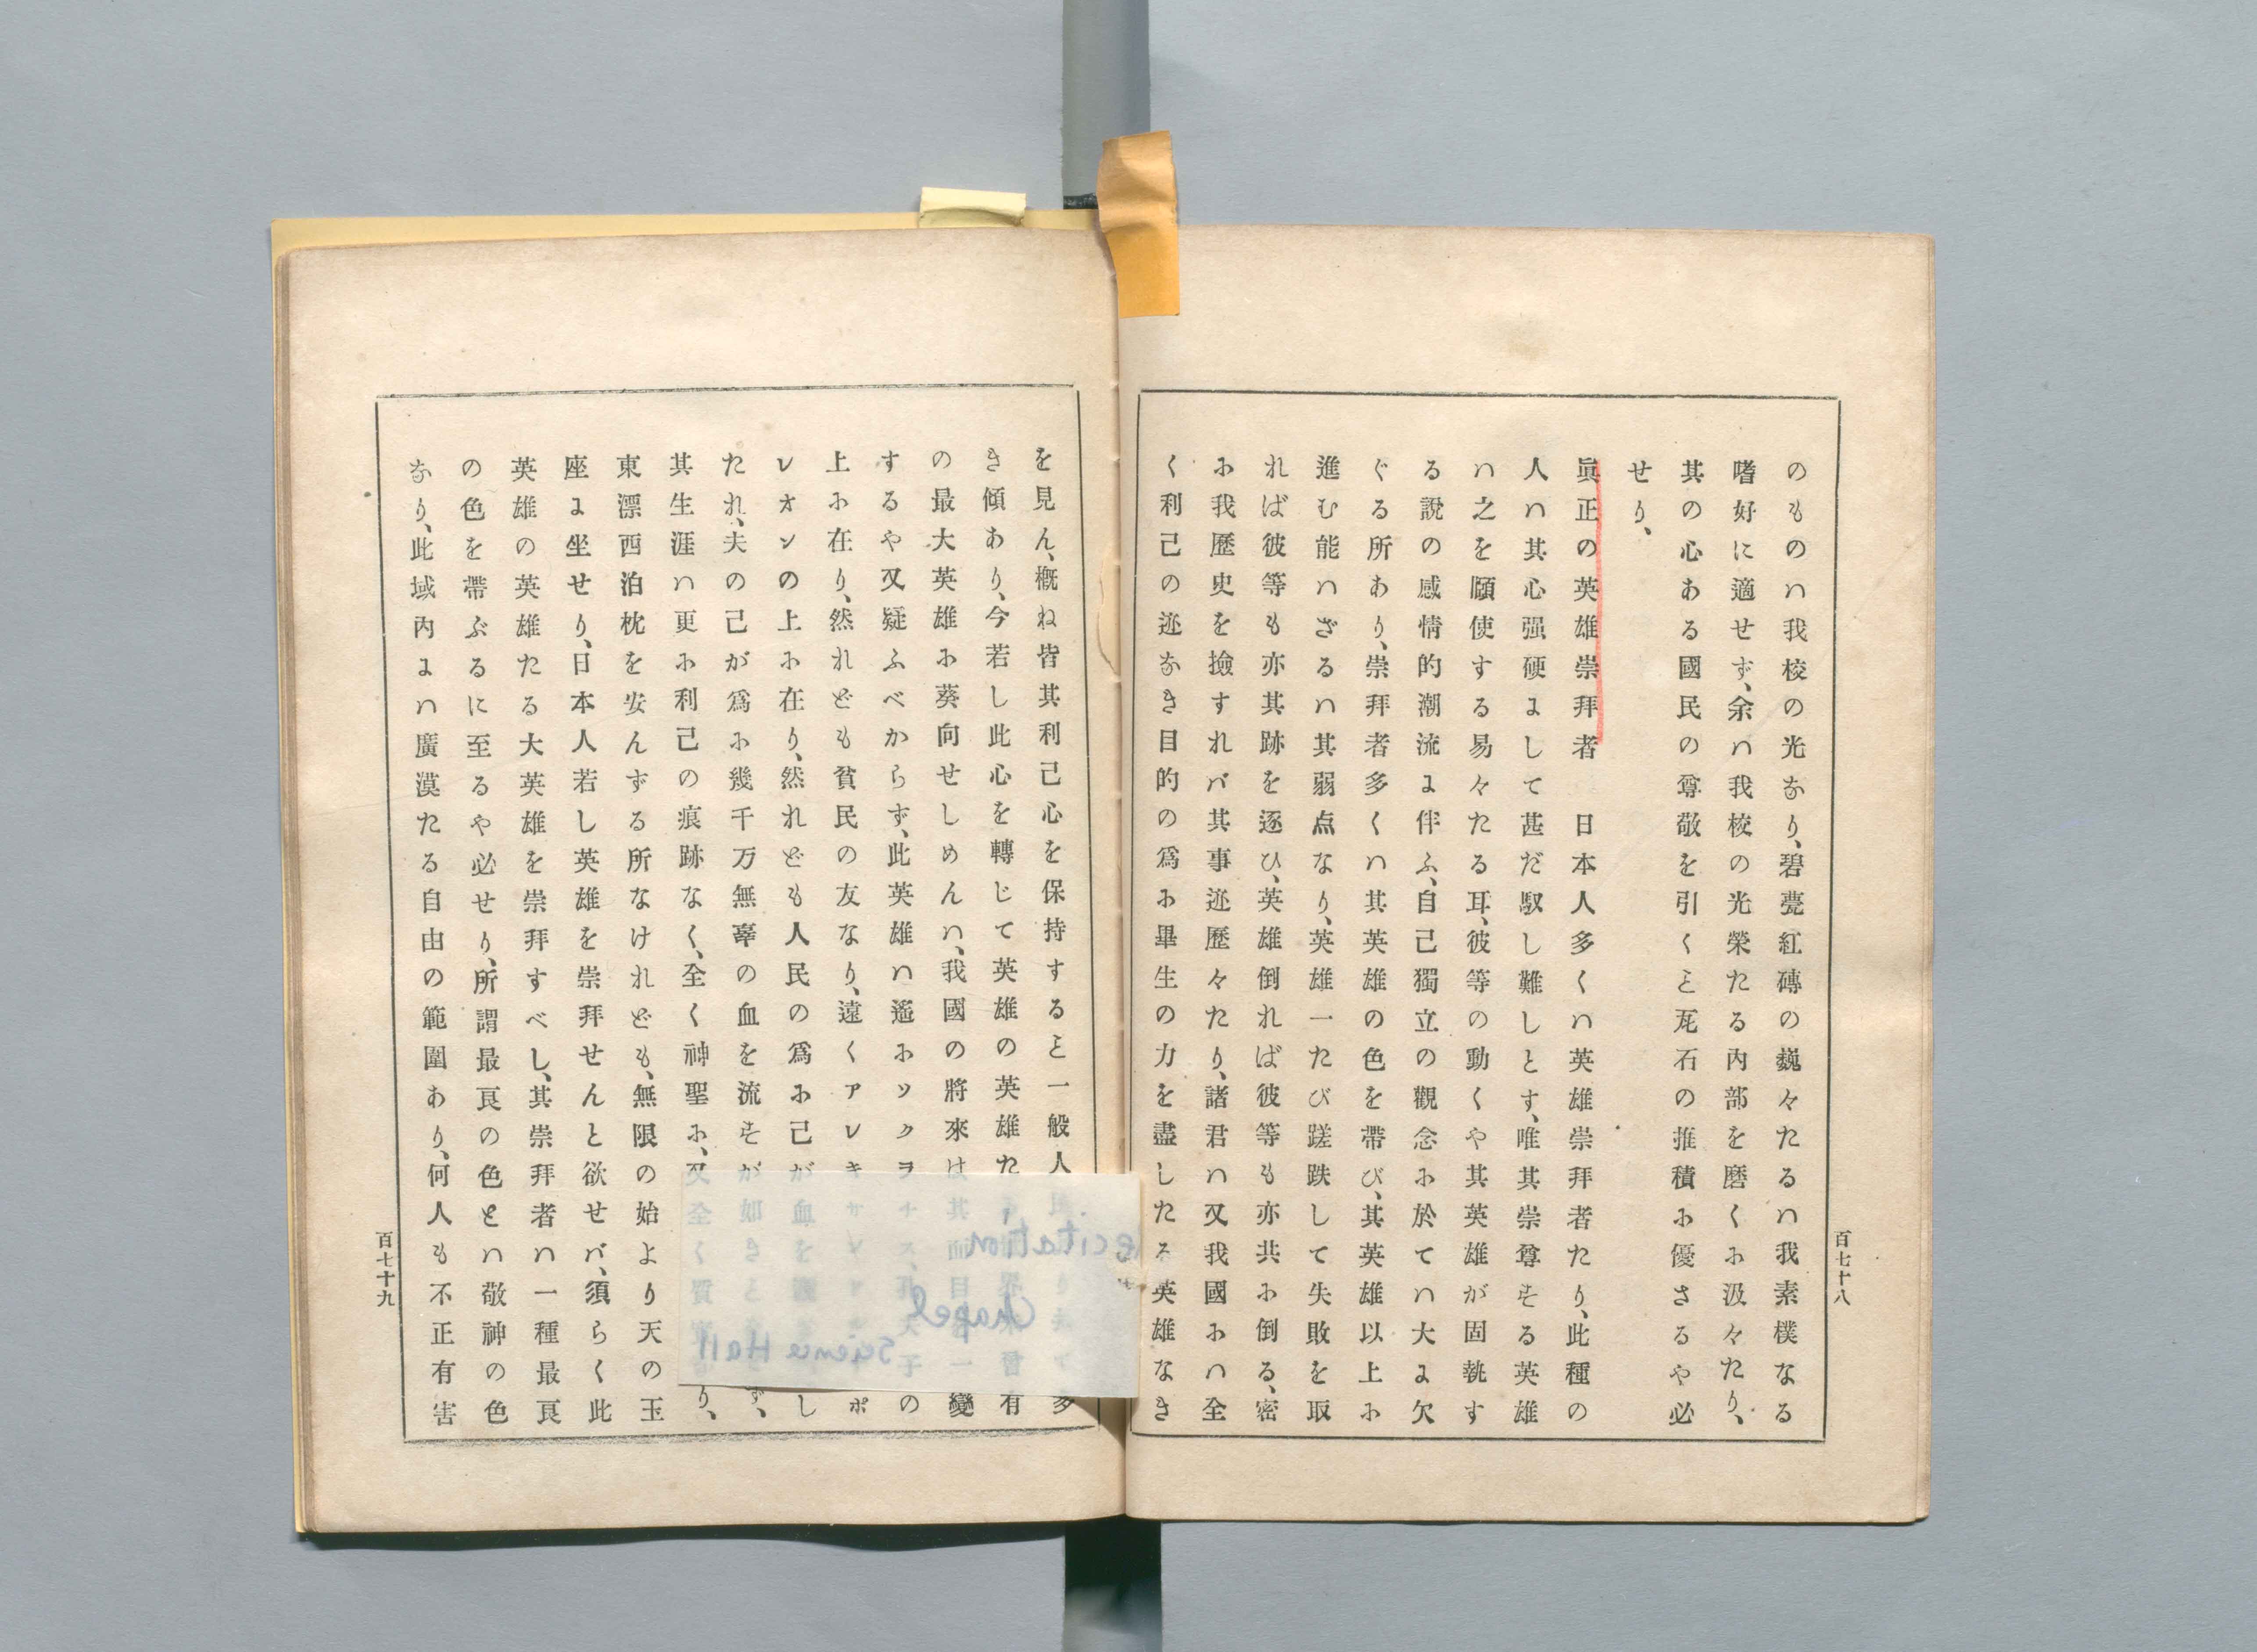 のものハ我校の光なり、碧甍紅磚の巍々たるハ我素樸なる
嗜好に適せず、余ハ我校の光榮たる內部を磨くお汲々たり、
其の心ある國民の尊敬を引くと瓦石の推積お優さるや必
せり、
眞正の英雄崇拜者　日本人多くハ英雄崇拜者たり、此種の
人ハ其心强硬よして甚だ馭し難しとす、唯其崇尊せる英雄
ハ之を願使する易々たる耳、彼等の動くや其英雄が固執す
る說の感情的潮流よ伴ふ、自己獨立の觀念お於てハ大よ欠
ぐる所あり、崇拜者多くハ其英雄の色を帶び、其英雄以上お
進む能ハざるハ其弱点なり、英雄一たび蹉跌して失敗を取
れば彼等も亦其跡を逐ひ、英雄倒れば彼等も亦共お倒る、密
お我歷史を撿すれバ其事迹歷々たり、諸君ハ又我國おハ全
く利己の迹なき目的の爲お畢生の力を盡したる英雄なき
百七十八
を見ん、槪ね皆其利己心を保持すると一般人 多
き傾あり、今若し此心を轉じて英雄の英雄た 有
の最大英雄お葵向せしめんハ、我國の將來は其面目 一變
するや又疑ふべからず、此英雄ハ遙おソクヲ 子の
上お在り、然れども貧民の友なり、遠くアレキサン ポ
レオンの上お在り、然れども人民の爲お己が血を し
たれ、夫の己が爲お幾千万無辜の血を流せが如き ず、
其生涯ハ更お利己の痕跡なく、全く神聖お、又全く質 り、
東漂西泊枕を安んずる所なけれども、無限の始より天の玉
座よ坐せり、日本人若し英雄を崇拜せんと欲せバ、須らく此
英雄の英雄たる大英雄を崇拜すべし、其崇拜者ハ一種最良
の色を帶ぶるに至るや必せり、所謂最良の色とハ敬神の色
なり、此域內よハ廣漠たる自由の範圍あり、何人も不正有害
百七十九
Recitation
Chapel
Science Hall